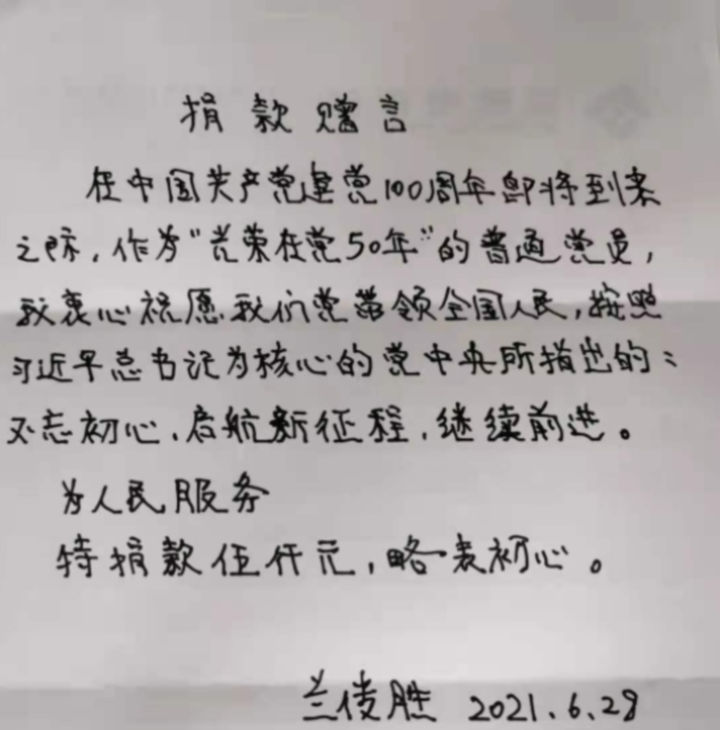 捐款赠言
在中国共产党建党100周年即将到来
之际，作为"光荣在党50年"的普通党员，
我衷心祝愿我们党带领全国人民，按照
习近平总书记为核心的党中央所指出的：
不忘初心、启航新征程，继续前进。
为人民服务
特捐款伍仟元，略表初心。
兰俊胜 2021.6.29